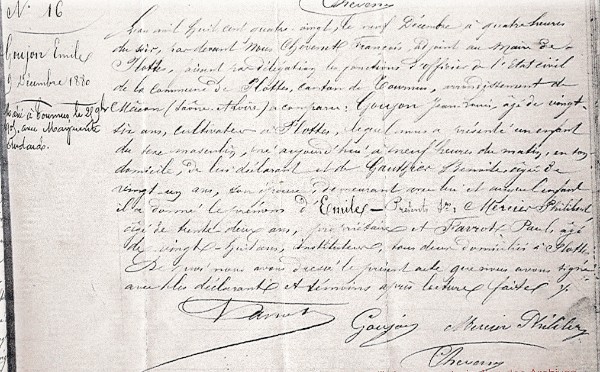 N° 16
Goujon Emile
9 Décembre 1880
Marié à Tournus le 28
avec Marguerite
L'an mil huit cent quatre-vingt, le neuf Décembre à quatre heures
du soir, par devant Nous Chevenet François, adjoint au maire de
Plottes, faisant par délégation les fonctions d'officier de l'état civil
de la commune de Plottes, canton de Tournus, arrondissement de
Mâcon (Saône-et-Loire) a comparu : Goujon Jean Louis, âgé de vingt-
six ans, cultivateur à Plottes, lequel nous a présenté un enfant
du sexe masculin, né aujourd'hui à neuf heures du matin, en son
domicile, de lui déclarant et de Gauthier Benoite, âgée de
vingt-un ans, son épouse demeurant avec lui et auquel enfant
il a donné le prénom d'Emile - Présents Srs Mercier Philibert,
âgé de trente deux ans, propriétaire et Farrot Paul, âgé
de vingt-huit ans, instituteur, tous deux domiciliés à Plottes.
De quoi nous avons dressé le présent acte que nous avons signé
avec les déclarant et témoins après lecture faite /.
Goujon Mercier Philiber